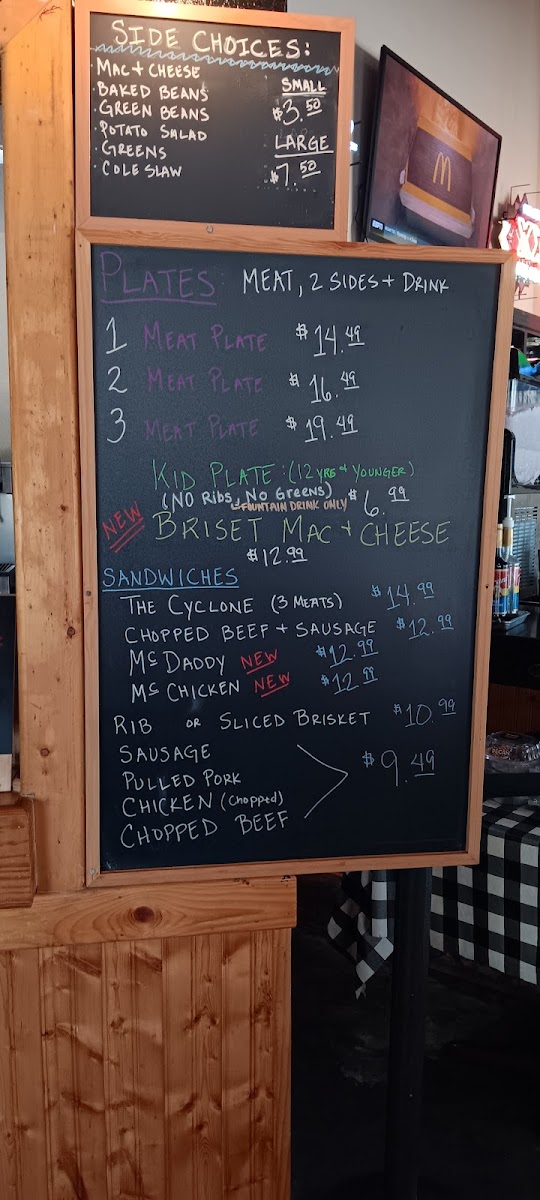 SIDE CHOICES:
· MAC + CHEESE
· BAKED BEANS
· GREEN BEANS
· POTATO SALAD
· GREENS
· COLE SLAW
SMALL
$3.50
LARGE
$7.50
M
ESPN
PLATES: MEAT, 2 SIDES + DRINK
1 MEAT PLATE $14.49
2 MEAT PLATE $16.49
3 MEAT PLATE $19.49
KID PLATE: (12 YRS + YOUNGER)
(NO RIBS, NO GREENS) $6.99
FOUNTAIN DRINK ONLY
NEW BRISET MAC + CHEESE
$12.99
SANDWICHES
THE CYCLONE (3 MEATS) $14.99
CHOPPED BEEF + SAUSAGE $12.99
MC DADDY NEW $12.99
MC CHICKEN NEW $12.99
RIB OR SLICED BRISKET $10.99
SAUSAGE
PULLED PORK $9.49
CHICKEN (Chopped)
CHOPPED BEEF